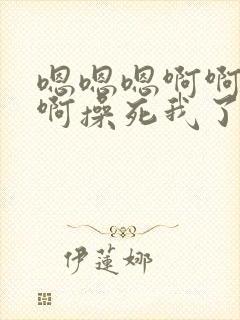 嗯嗯嗯啊啊
啊操死我了
伊莲娜